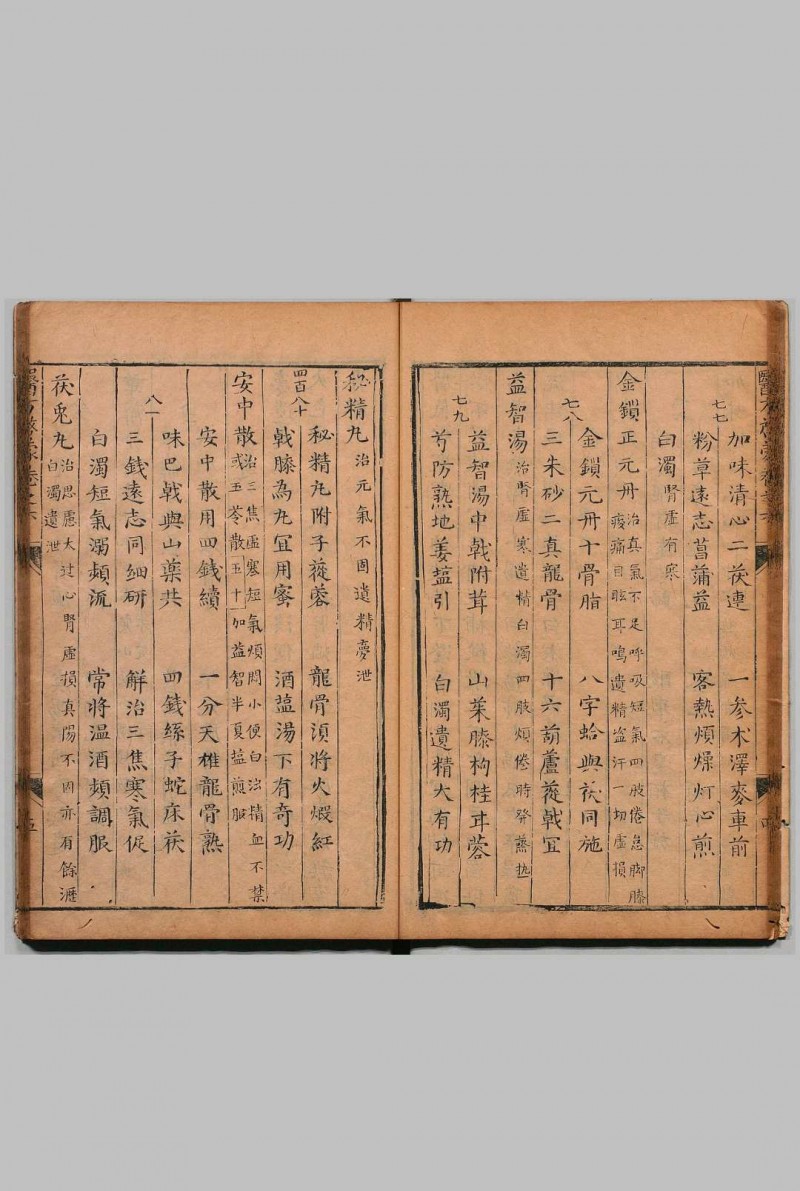 七七
加味清心二茯連　一参朮澤麥車前
粉草遠志菖蒲益　客熱煩燥灯心煎
白濁　腎虛有寒
金鎖正元丹　治真氣不足呼吸短氣四肢倦怠脚膝
痠痛目眩耳鳴遺精盗汗一切虛損
七八
金鎖元丹十骨脂　八字蛤與茯同施
三朱砂二真龍骨　十六葫蘆蓯戟冝
益智湯　治腎虛寒遺精白濁四肢煩倦時發蒸热
益智湯中戟附茸　山茱膝枸桂耳蓉
七九
芍防熟地姜塩引　白濁遺精大有功
秘精丸　治元氣不固遺精夢泄
四百八十
秘精丸附子蓯蓉　龍骨湏將火煆紅
戟膝為丸冝用蜜　酒塩湯下有奇功
安中散　治三焦虛寒短氣煩悶小便白浊精血不禁
或五苓散五十加益智半夏塩煎服
安中散用四錢續　一分天雄龍骨熟
味巴戟與山藥共　四錢絲子蛇床茯
八一
三錢遠志同細研　解治三焦寒氣促
白濁短氣濁頻流　常將温酒頻調服
茯兎丸　治思慮太过心腎虛損真陽不固亦有餘瀝
白濁遺泄